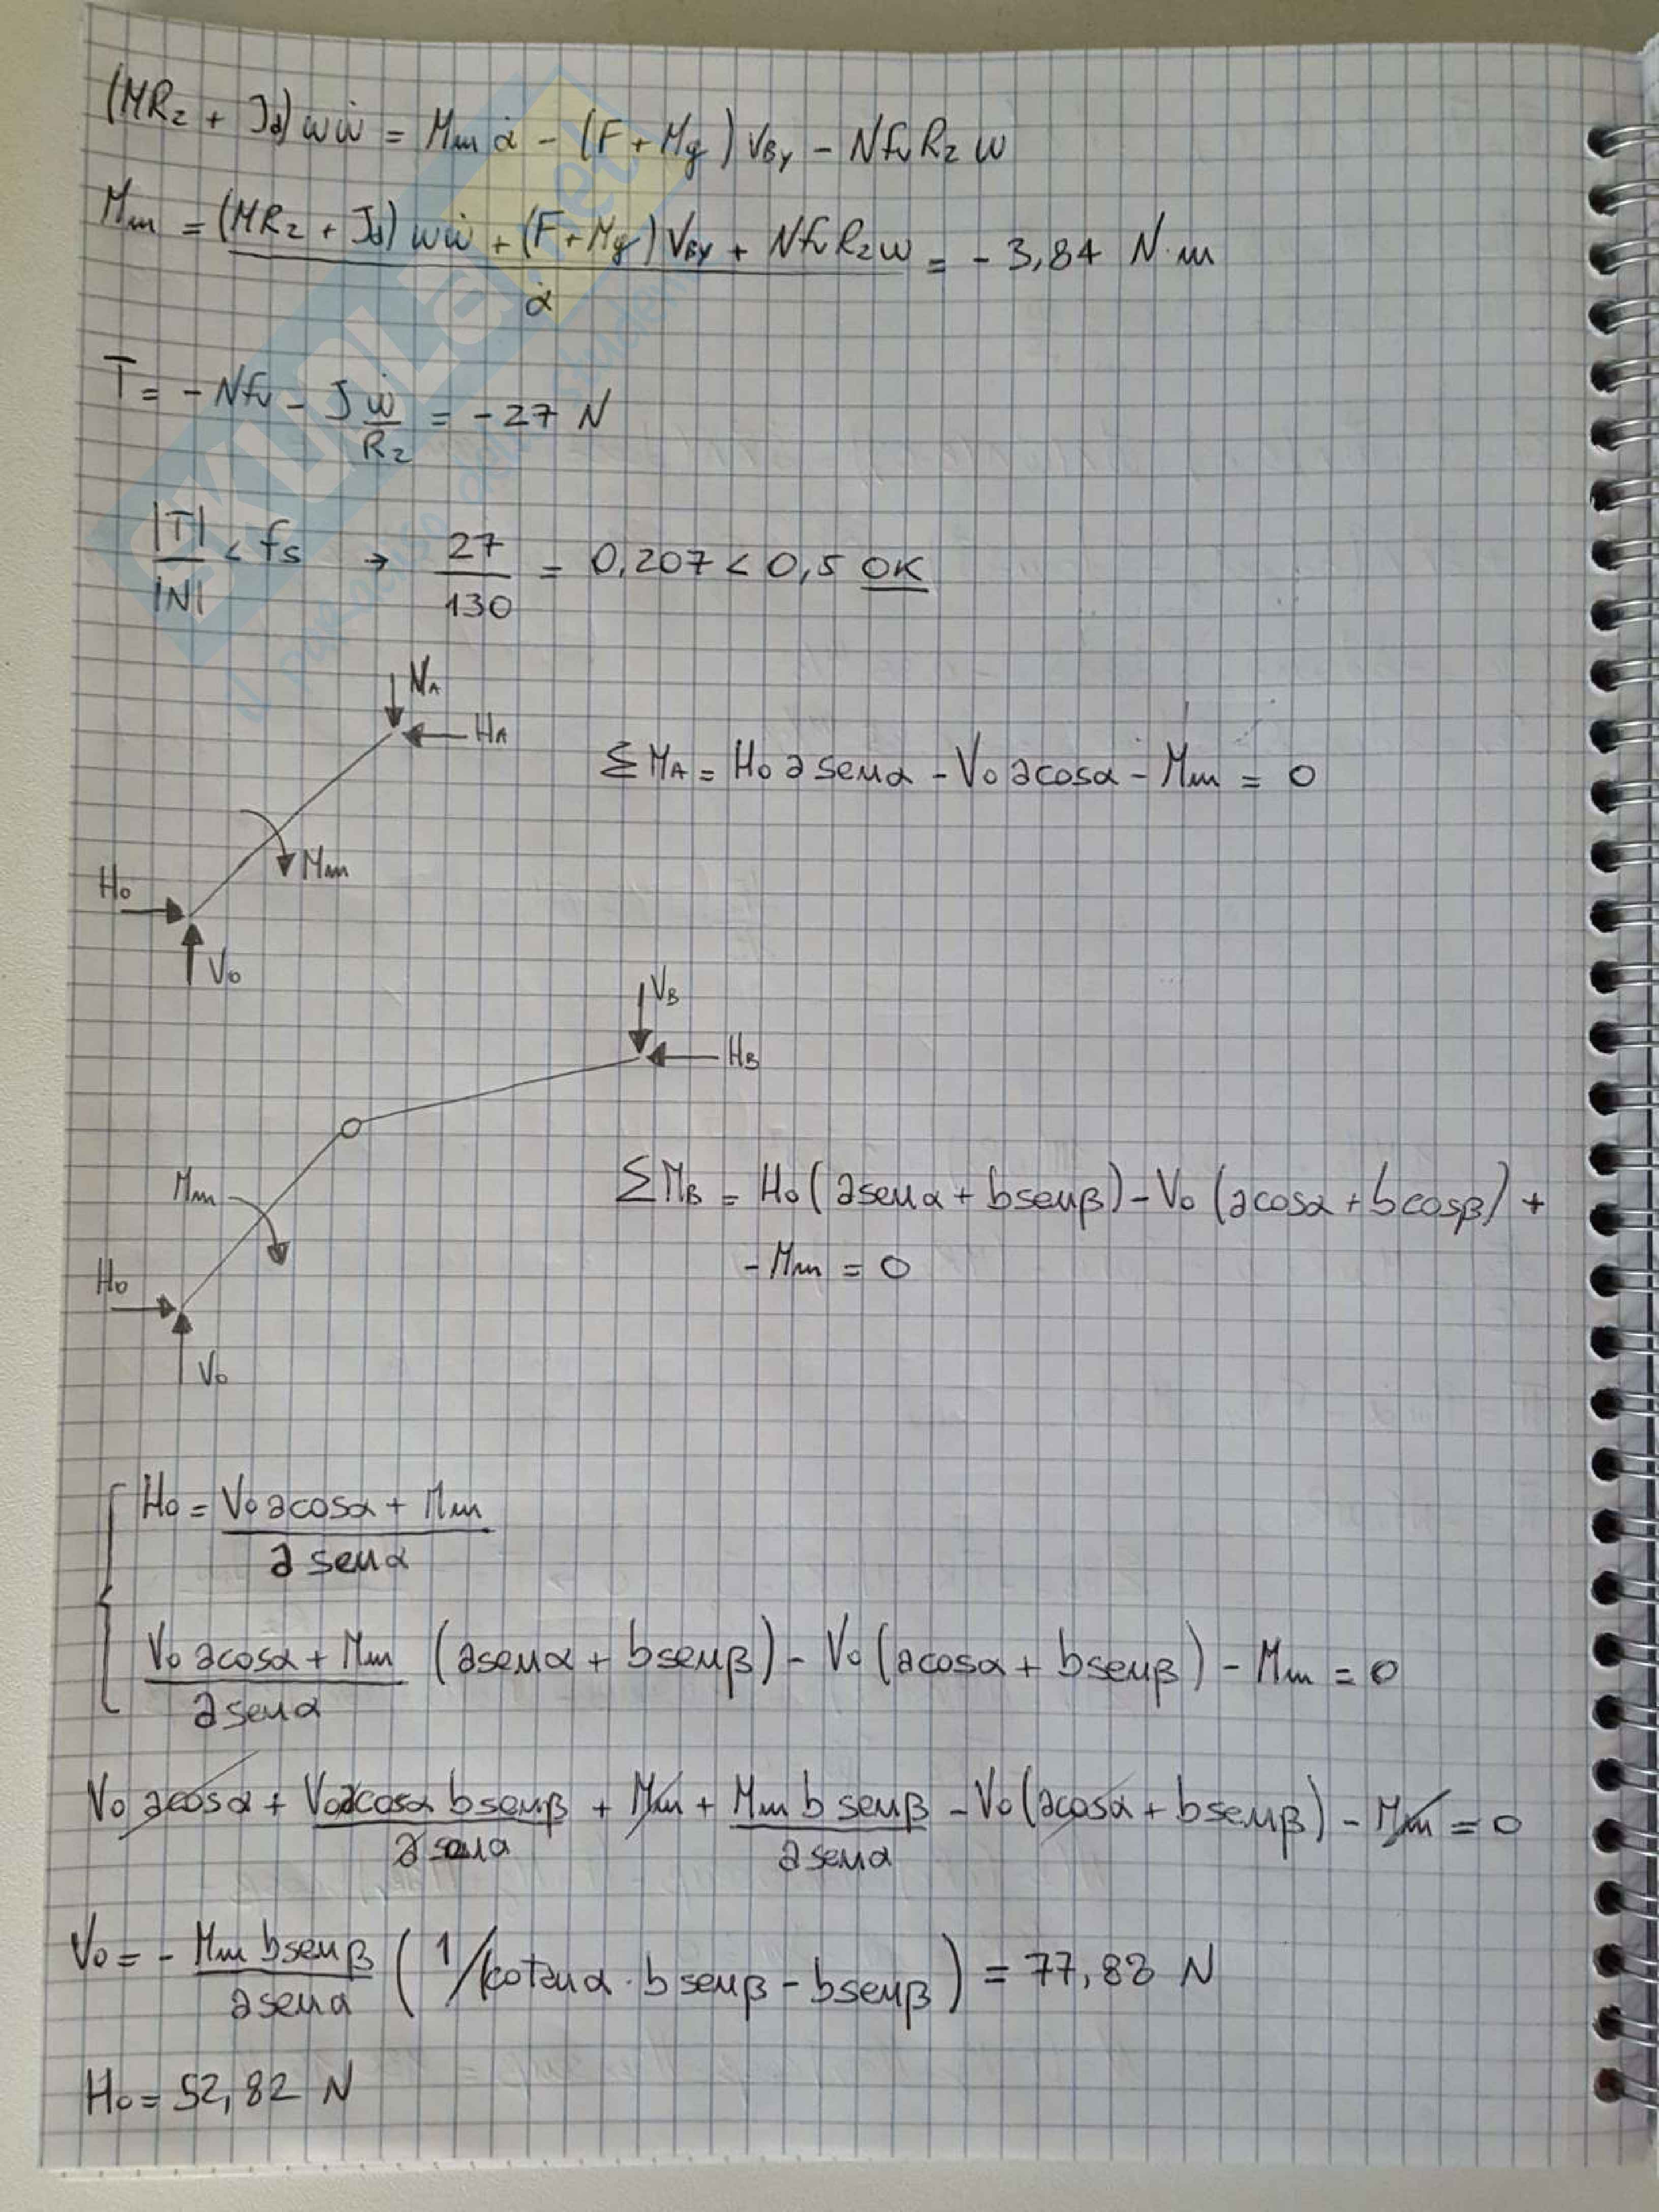 (MR₂ + Jd) ωω̇ = Mm α̇ - (F + Mg) VBy - N fv R₂ ω
Mm = (MR₂ + Jd) ωω̇ + (F + Mg) VBy + N fv R₂ ω / α̇ = - 3,84 N·m
T = - N fv - J ω̇ / R₂ = - 27 N
|T| / |N| < fs → 27 / 130 = 0,207 < 0,5 OK
VA
HA
ΣMA = Ho a senα - Vo a cosα - Mm = 0
Mm
Ho
Vo
VB
HB
Mm
ΣMB = Ho (a senα + b senβ) - Vo (a cosα + b cosβ) +
- Mm = 0
Ho
Vo
Ho = Vo a cosα + Mm / a senα
Vo a cosα + Mm / a senα (a senα + b senβ) - Vo (a cosα + b senβ) - Mm = 0
Vo a cosα + Vo a cosα b senβ / a senα + Mm + Mm b senβ / a senα - Vo (a cosα + b senβ) - Mm = 0
Vo = - Mm b senβ / a senα ( 1 / cotanα · b senβ - b senβ ) = 77,83 N
Ho = 52,82 N
SKUOLA.net